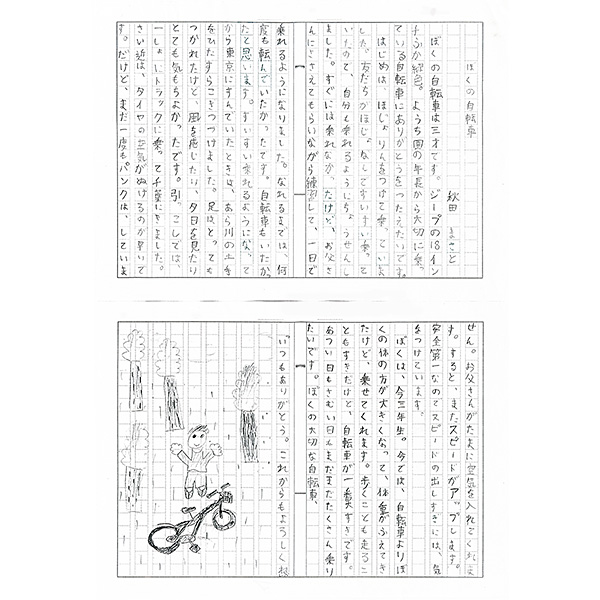 ぼくの自転車
秋田 まさと
ぼくの自転車は三才です。ジープの18イン
チぶか緑色。ようち園の年長から大切に乗っ
ている自転車にありがとうをつたえたいです。
はじめは、ほじょりんをつけて乗っていま
した。友だちがほじょなしですいすい乗って
いたので、自分も乗れるようにちょうせんし
ました。すぐには乗れなかったけど、お父さ
んにささえてもらいながら練習して、一日で
乗れるようになりました。なれるまでは、何
度も転んでいたかったです。自転車もいたかっ
たと思います。すいすい乗れるようになって
から東京にすんでいたときは、あら川の土手
をひたすらこぎつづけました。足はとっても
つかれたけど、風を感じたり、夕日を見たり
とても気もちよかったです。引っこしでは、
いっしょにトラックに乗って千葉にきました。
さい近は、タイヤの空気がぬけるのが早いで
す。だけど、まだ一度もパンクは、していま
せん。お父さんがたまに空気を入れてくれま
す。すると、またスピードがアップします。
安全第一なのでスピードの出しすぎには、気
をつけています。
ぼくは、今三年生。今では、自転車よりぼ
くの体の方が大きくなって、体重がふえてき
たけど、乗せてくれます。歩くことも走るこ
ともすきだけど、自転車が一番大すきです。
あつい日もさむい日もまだまだたくさん乗り
たいです。ぼくの大切な自転車、
「いつもありがとう。これからもよろしくね